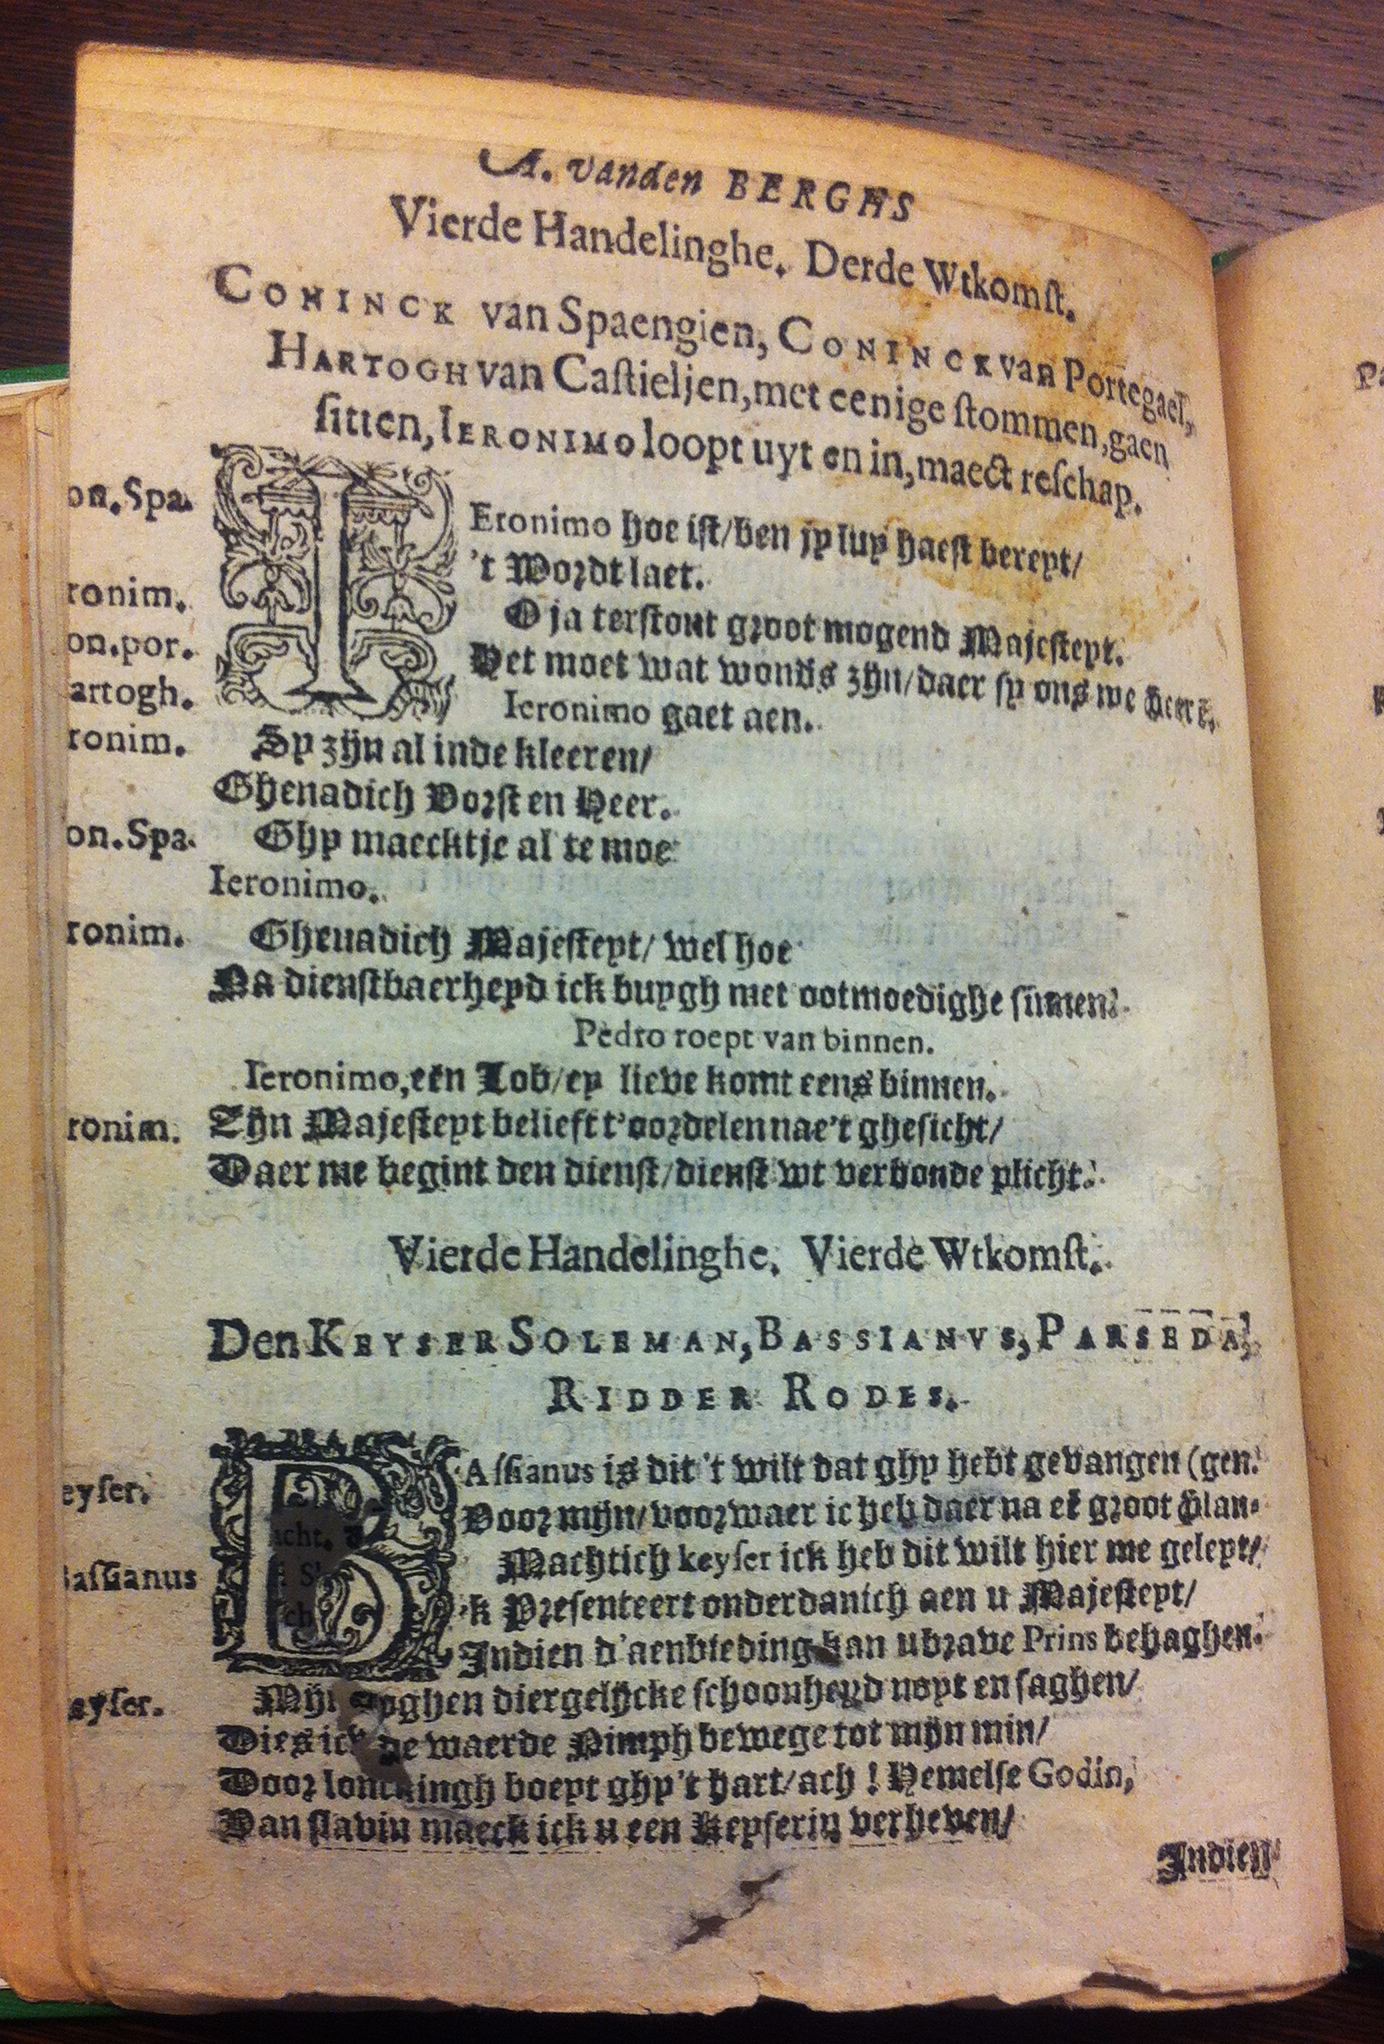 A. vanden BERGHS
Vierde Handelinghe. Derde Wtkomst.
CONINCK van Spaengien, CONINCK van Portegael,
HARTOGH van Castieljen, met eenige stommen, gaen
sitten, IERONIMO loopt uyt en in, maect reschap.
on. Spa. IEronimo hoe ist/ ben jy luy haest bereyt/
't Wordt laet.
ronim. O ja terstont groot mogend Majesteyt.
on. por. Het moet wat wonds zijn/ daer sy ons me
artogh. Ieronimo gaet aen.
ronim. Sy zijn al inde kleeren/
Ghenadich Vorst en Heer.
on. Spa. Ghy maecktje al te moe
Ieronimo.
ronim. Ghenadich Majesteyt/ wel hoe
Na dienstbaerheyd ick buygh met ootmoedighe sinnen.
Pedro roept van binnen.
Ieronimo, een Iob/ ey lieve komt eens binnen.
ronim. Zijn Majesteyt belieft t'oordelen nae't ghesicht/
Daer me begint den dienst/ dienst wt verbonde plicht.
Vierde Handelinghe. Vierde Wtkomst.
Den KEYSER SOLEMAN, BASSIANVS, PARSEDA,
RIDDER RODES.
eyser. BAssianus is dit 't wilt dat ghy hebt gevangen (gen.
Voor mijn/ voorwaer ic heb daer na eē groot
Bassianus Machtich keyser ick heb dit wilt hier me geleyt/
'k Presenteert onderdanich aen u Majesteyt/
Indien d'aenbieding kan u brave Prins behaghen.
eyser. Mijn ooghen diergelijcke schoonheyd noyt en saghen/
Dies ick de waerde Nimph bewege tot mijn min/
Door lonckingh boeyt ghy 't hart/ ach! Hemelse Godin,
Van slavin maeck ick u een Keyserin verheven/
Indien